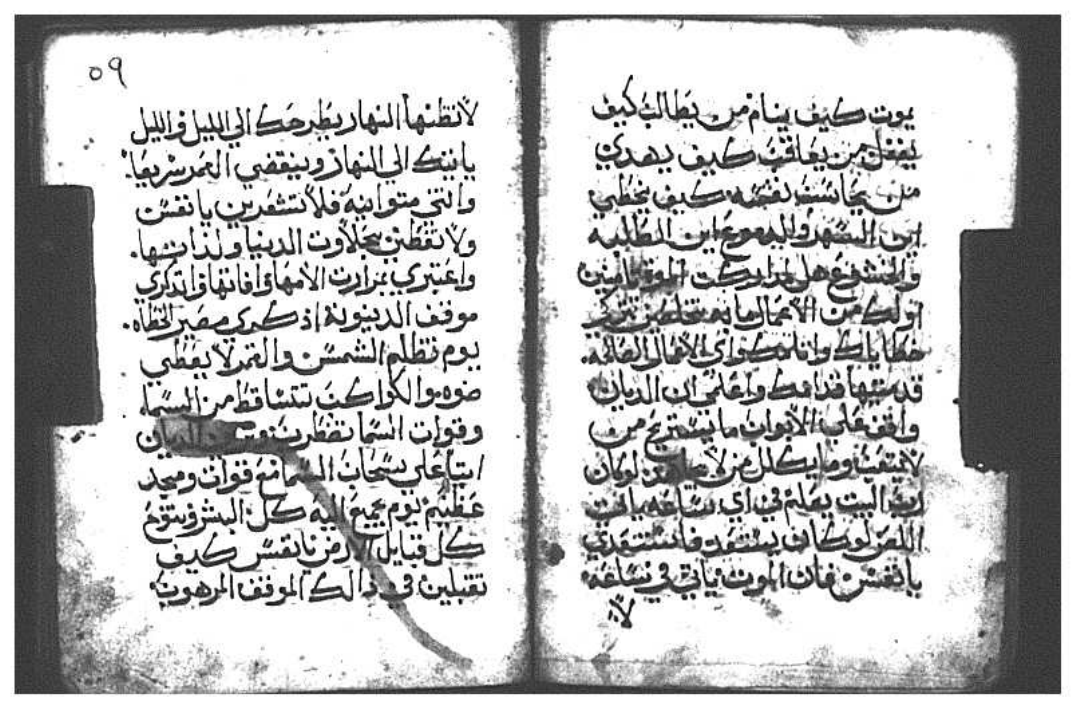 يموت كيف ينام من يطالب كيف
يغفل من يعاقب كيف يهدي
من يحاسب نفسه كيف يخطي
اين السهر والدموع اين الطلبه
والخشوع هل
اولك من الاعمال ما به تتخلصين
خطاياك وانا الاعمال الصالحه
قدمتيها قدامك واعلمي ان الديان
واقف علي الابواب ما يستريح من
لا يتعب وما يكلل من لا لو كان
رب البيت يعلم في اي ساعه ياتي
اللص لو كان يستعد فاستعدي
يا نفس فان الموت ياتي في ساعه
لا
٥٩
لا تظنيها النهار يطرحك الي الليل والليل
ياتيك الي النهار وينقضي العمر سريعا
وانتي متوانيه فلا تشعرين يا نفس
ولا تغطين بحلاوت الدنيا ولذاتها
واعتبري بمرارت الامها وافاتها واتذكري
موقف الدينونة اذكري مصير الخطاه
يوم تظلم الشمس والقمر لا يعطي
ضوه والكواكب تتساقط من السما
وقوات السما تضطرب الديان
اتيا علي سحاب السما مع قوات ومجد
عظيم يوم يجمع اليه كل البشر وينوح
كل قبايل الارض يا نفس كيف
تقبلين في ذالك الموقف المرهوب